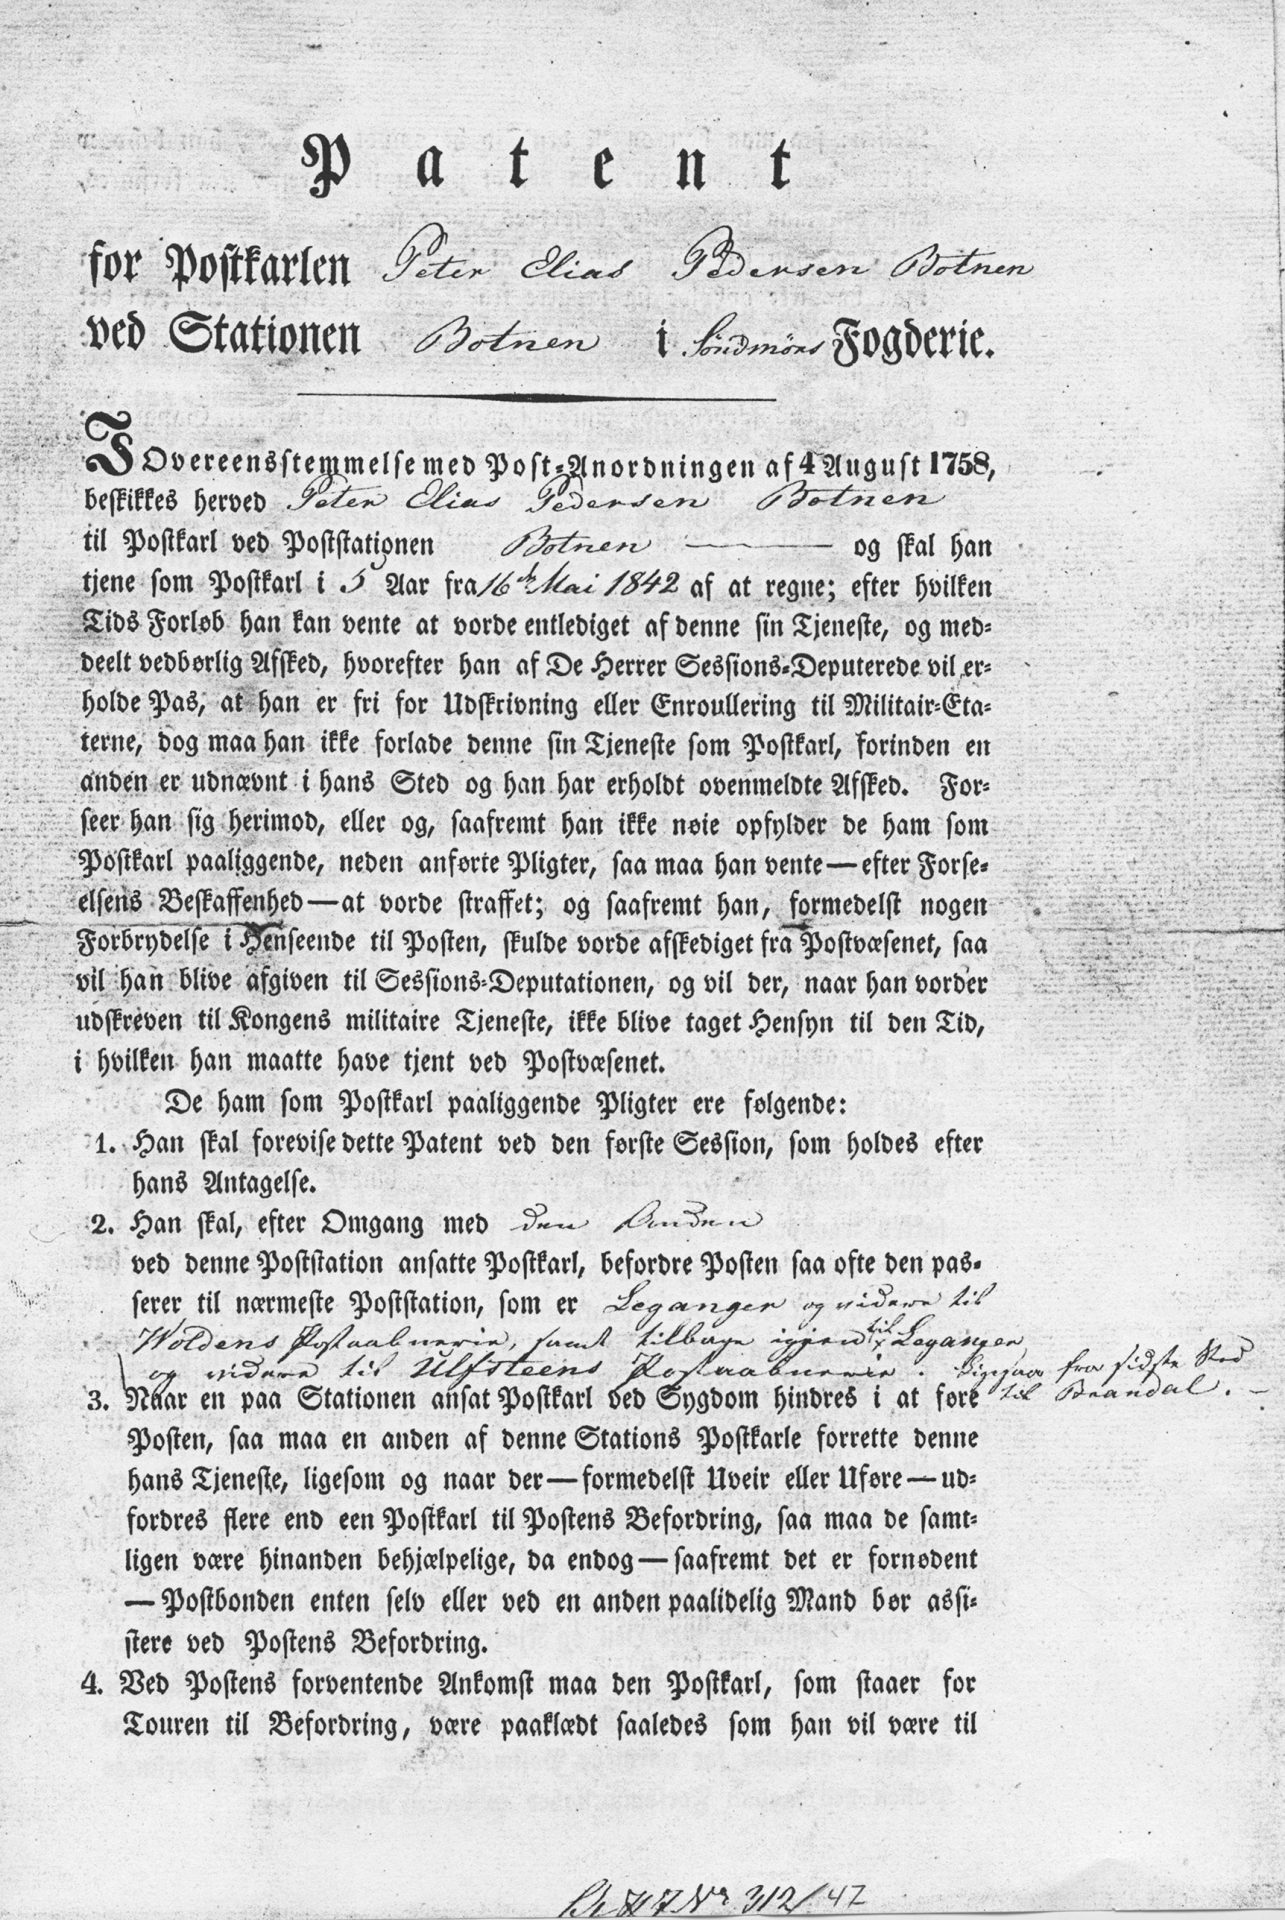 Patent
for Postkarlen Peter Elias Pedersen Botnen
ved Stationen Botnen i Söndmörs Fogderie.
I Overeensstemmelse med Post-Anordningen af 4 August 1758,
beskikkes herved Peter Elias Pedersen Botnen
til Postkarl ved Poststationen Botnen og skal han
tjene som Postkarl i 5 Aar fra 16de Mai 1842 af at regne; efter hvilken
Tids Forløb han kan vente at vorde entlediget af denne sin Tjeneste, og med-
deelt vedbørlig Afsked, hvorefter han af De Herrer Sessions-Deputerede vil er-
holde Pas, at han er fri for Udskrivning eller Enroullering til Militair-Eta-
terne, dog maa han ikke forlade denne sin Tjeneste som Postkarl, forinden en
anden er udnævnt i hans Sted og han har erholdt ovenmeldte Afsked. For-
seer han sig herimod, eller og, saafremt han ikke nøie opfylder de ham som
Postkarl paaliggende, neden anførte Pligter, saa maa han vente—efter Forse-
elsens Beskaffenhed—at vorde straffet; og saafremt han, formedelst nogen
Forbrydelse i Henseende til Posten, skulde vorde afskediget fra Postvæsenet, saa
vil han blive afgiven til Sessions-Deputationen, og vil der, naar han vorder
udskreven til Kongens militaire Tjeneste, ikke blive taget Hensyn til den Tid,
i hvilken han maatte have tjent ved Postvæsenet.
De ham som Postkarl paaliggende Pligter ere følgende:
1. Han skal forevise dette Patent ved den første Session, som holdes efter
hans Antagelse.
2. Han skal, efter Omgang med den Anden
ved denne Poststation ansatte Postkarl, befordre Posten saa ofte den pas-
serer til nærmeste Poststation, som er Leganger og videre til
Woldens Postaabnerie, samt tilbage igjen til Leganger
og videre til Ulfsteens Postaabnerie. Ligesaa fra sidste Sted
til Brandal.
3. Naar en paa Stationen ansat Postkarl ved Sygdom hindres i at føre
Posten, saa maa en anden af denne Stations Postkarle forrette denne
hans Tjeneste, ligesom og naar der—formedelst Uveir eller Uføre—ud-
fordres flere end een Postkarl til Postens Befordring, saa maa de samt-
ligen være hinanden behjælpelige, da endog—saafremt det er fornødent
—Postbonden enten selv eller ved en anden paalidelig Mand bør assi-
stere ved Postens Befordring.
4. Ved Postens forventende Ankomst maa den Postkarl, som staaer for
Touren til Befordring, være paaklædt saaledes som han vil være til
Nr 312/42